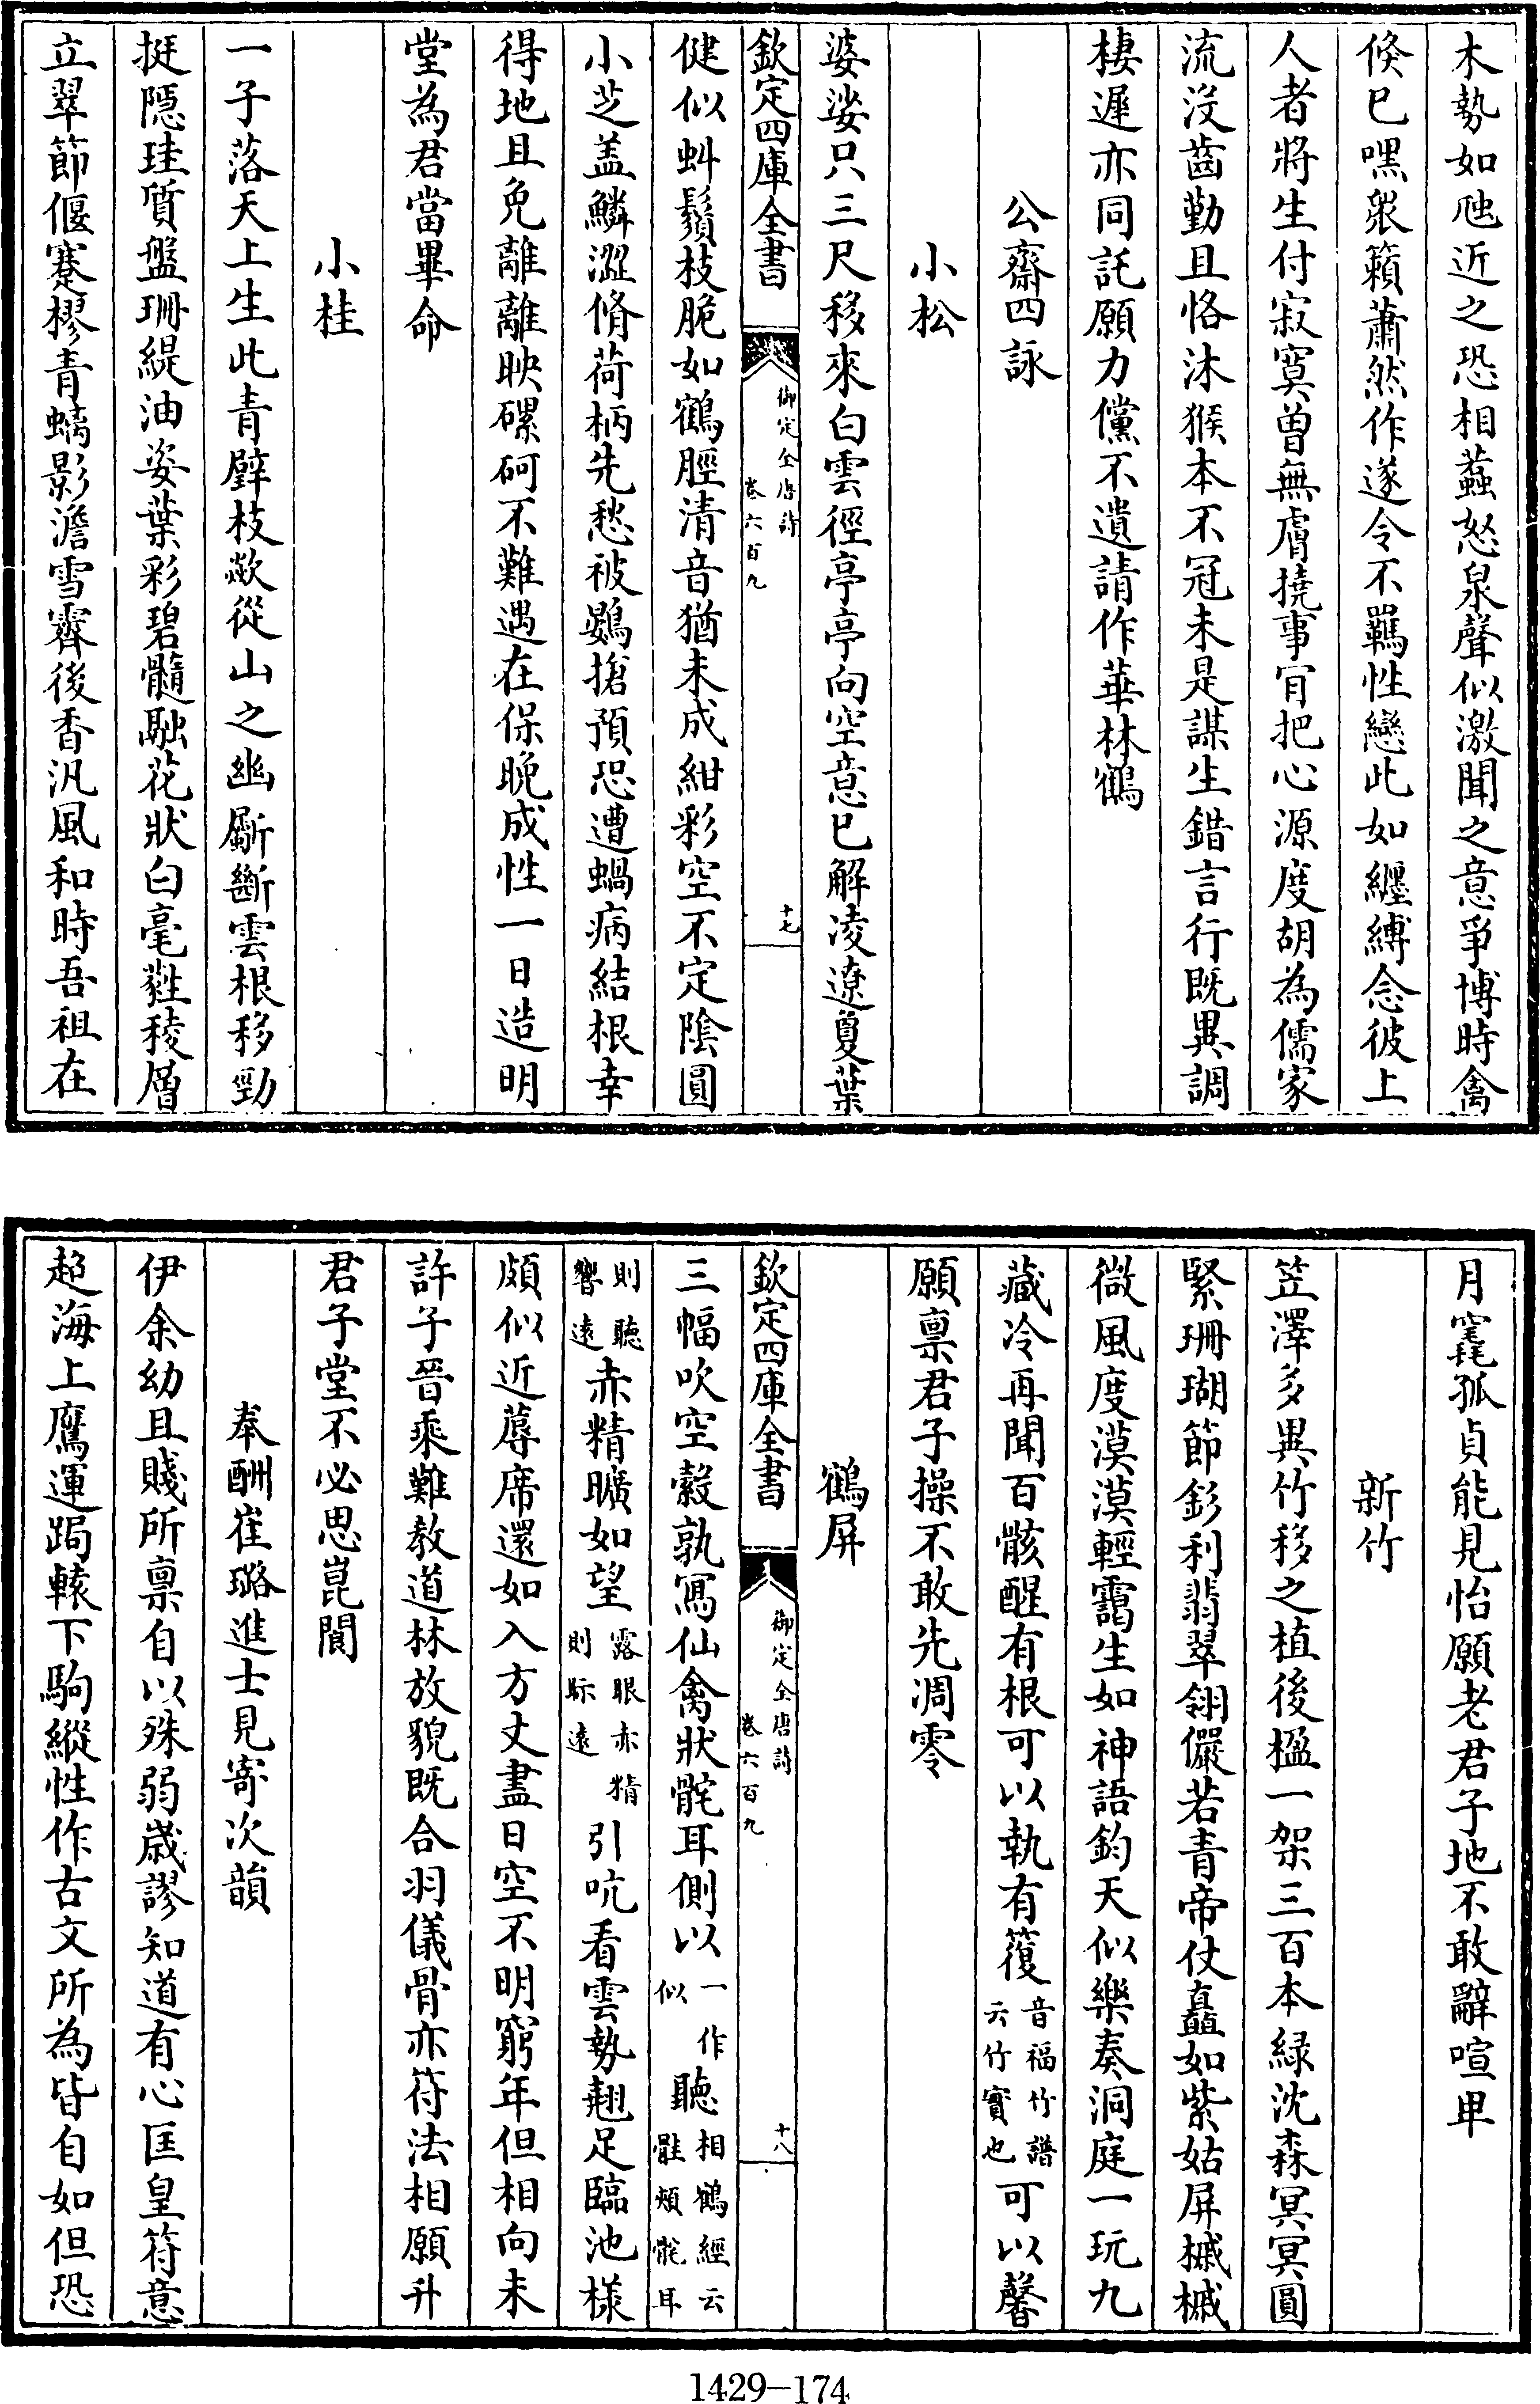 木勢如虺近之恐相蟲怒泉聲似激聞之意爭博時禽
倏已嘿衆籟蕭然作遂令不羈性戀此如纏縛念彼上
人者將生付寂寞曽無膚撓事肯把心源度胡為儒家
流沒齒勤且恪沐猴本不冠未是謀生錯言行既異調
棲遲亦同託願力儻不遺請作華林鶴
公齋四詠
小松
婆娑只三尺移來白雲徑亭亭向空意已解凌遼夐葉
欽定四庫全書
御定全唐詩
卷六百九
十七
健似虯鬚枝脆如鶴脛清音猶未成紺彩空不定陰圓
小芝盖鱗澀脩荷柄先愁被鷃搶預恐遭蝸病結根幸
得地且免離離映磥砢不難遇在保晚成性一日造明
堂為君當畢命
小桂
一子落天上生此青壁枝歘從山之幽斸斷雲根移勁
挺隠珪質盤珊緹油姿葉彩碧髓融花狀白毫蕤稜層
立翠節偃蹇樛青螭影澹雪霽後香汎風和時吾祖在
月窟孤貞能見怡願老君子地不敢辭喧卑
新竹
笠澤多異竹移之植後楹一架三百本緑沈森冥冥圓
緊珊瑚節釤利翡翠翎儼若青帝仗矗如紫姑屏槭槭
微風度漠漠輕靄生如神語鈞天似樂奏洞庭一玩九
藏冷再聞百骸醒有根可以執有𥳇
音福竹譜
云竹實也
可以馨
願禀君子操不敢先凋零
鶴屏
欽定四庫全書
御定全唐詩
卷六百九
十八
三幅吹空縠孰寫仙禽狀䯄耳側以
一作
似
聽
相鶴經云
䯄頰䯄耳
則聽
響遠
赤精曠如望
露眼赤精
則際遠
引吭看雲勢翹足臨池様
頗似近蓐席還如入方丈盡日空不明窮年但相向未
許子晉乘難教道林放貌既合羽儀骨亦符法相願升
君子堂不必思崑閬
奉酬崔璐進士見寄次韻
伊余幼且賤所禀自以殊弱嵗謬知道有心匡皇符意
超海上鷹運跼轅下駒縱性作古文所為皆自如但恐
1429—174